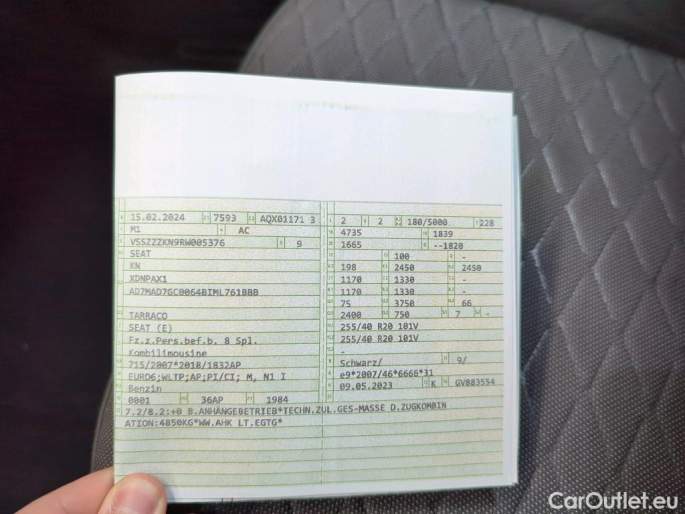 15.02.2024 7593 AQX01171 3
M1 AC
VSSZZZKN9RW005376 9
SEAT
KN
XDNPAX1
AD7MAD7GC0064BIML761BBB
TARRACO
SEAT (E)
Fz.z.Pers.bef.b. 8 Spl.
Kombilimousine
715/2007*2018/1832AP
EURO6;WLTP;AP;PI/CI; M, N1 I
Benzin
0001 36AP 1984
2 2 180/5000 228
4735 1839
1665 --1820
100 -
198 2450 2450
1170 1330 -
1170 1330 -
75 3750 66
2400 750 7 -
255/40 R20 101V
255/40 R20 101V
-
Schwarz/ 9/
e9*2007/46*6666*31
09.05.2023 K GV883554
7.2/8.2:+0 B.ANHÄNGEBETRIEB*TECHN.ZUL.GES-MASSE D.ZUGKOMBIN
ATION:4850KG*WW.AHK LT.EGTG*
CarOutlet.eu